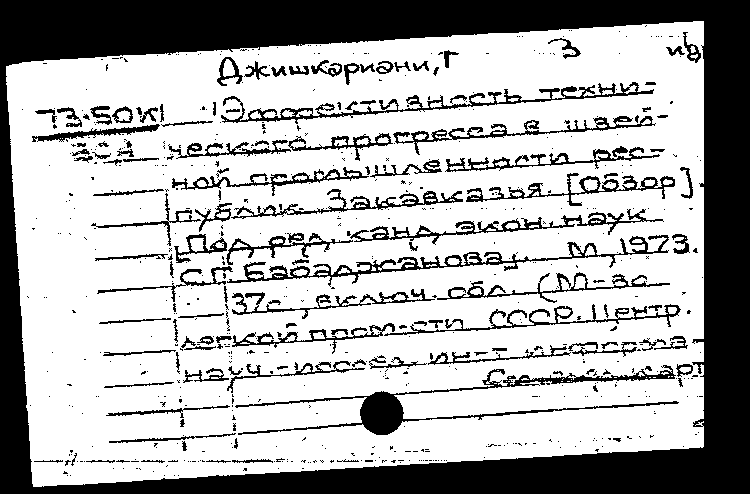 Джишкариани, Г 3
73-50К Эффективность техни-
ческого прогресса в швей-
ной промышленности рес-
публик Закавказья. [Обзор].
[Под ред. канд. экон. наук
С.Г. Бабаджанова]. М, 1973.
37с, включ. обл. (М-во
легкой пром-сти СССР. Центр.
науч.-исслед. ин-т информа-
карт